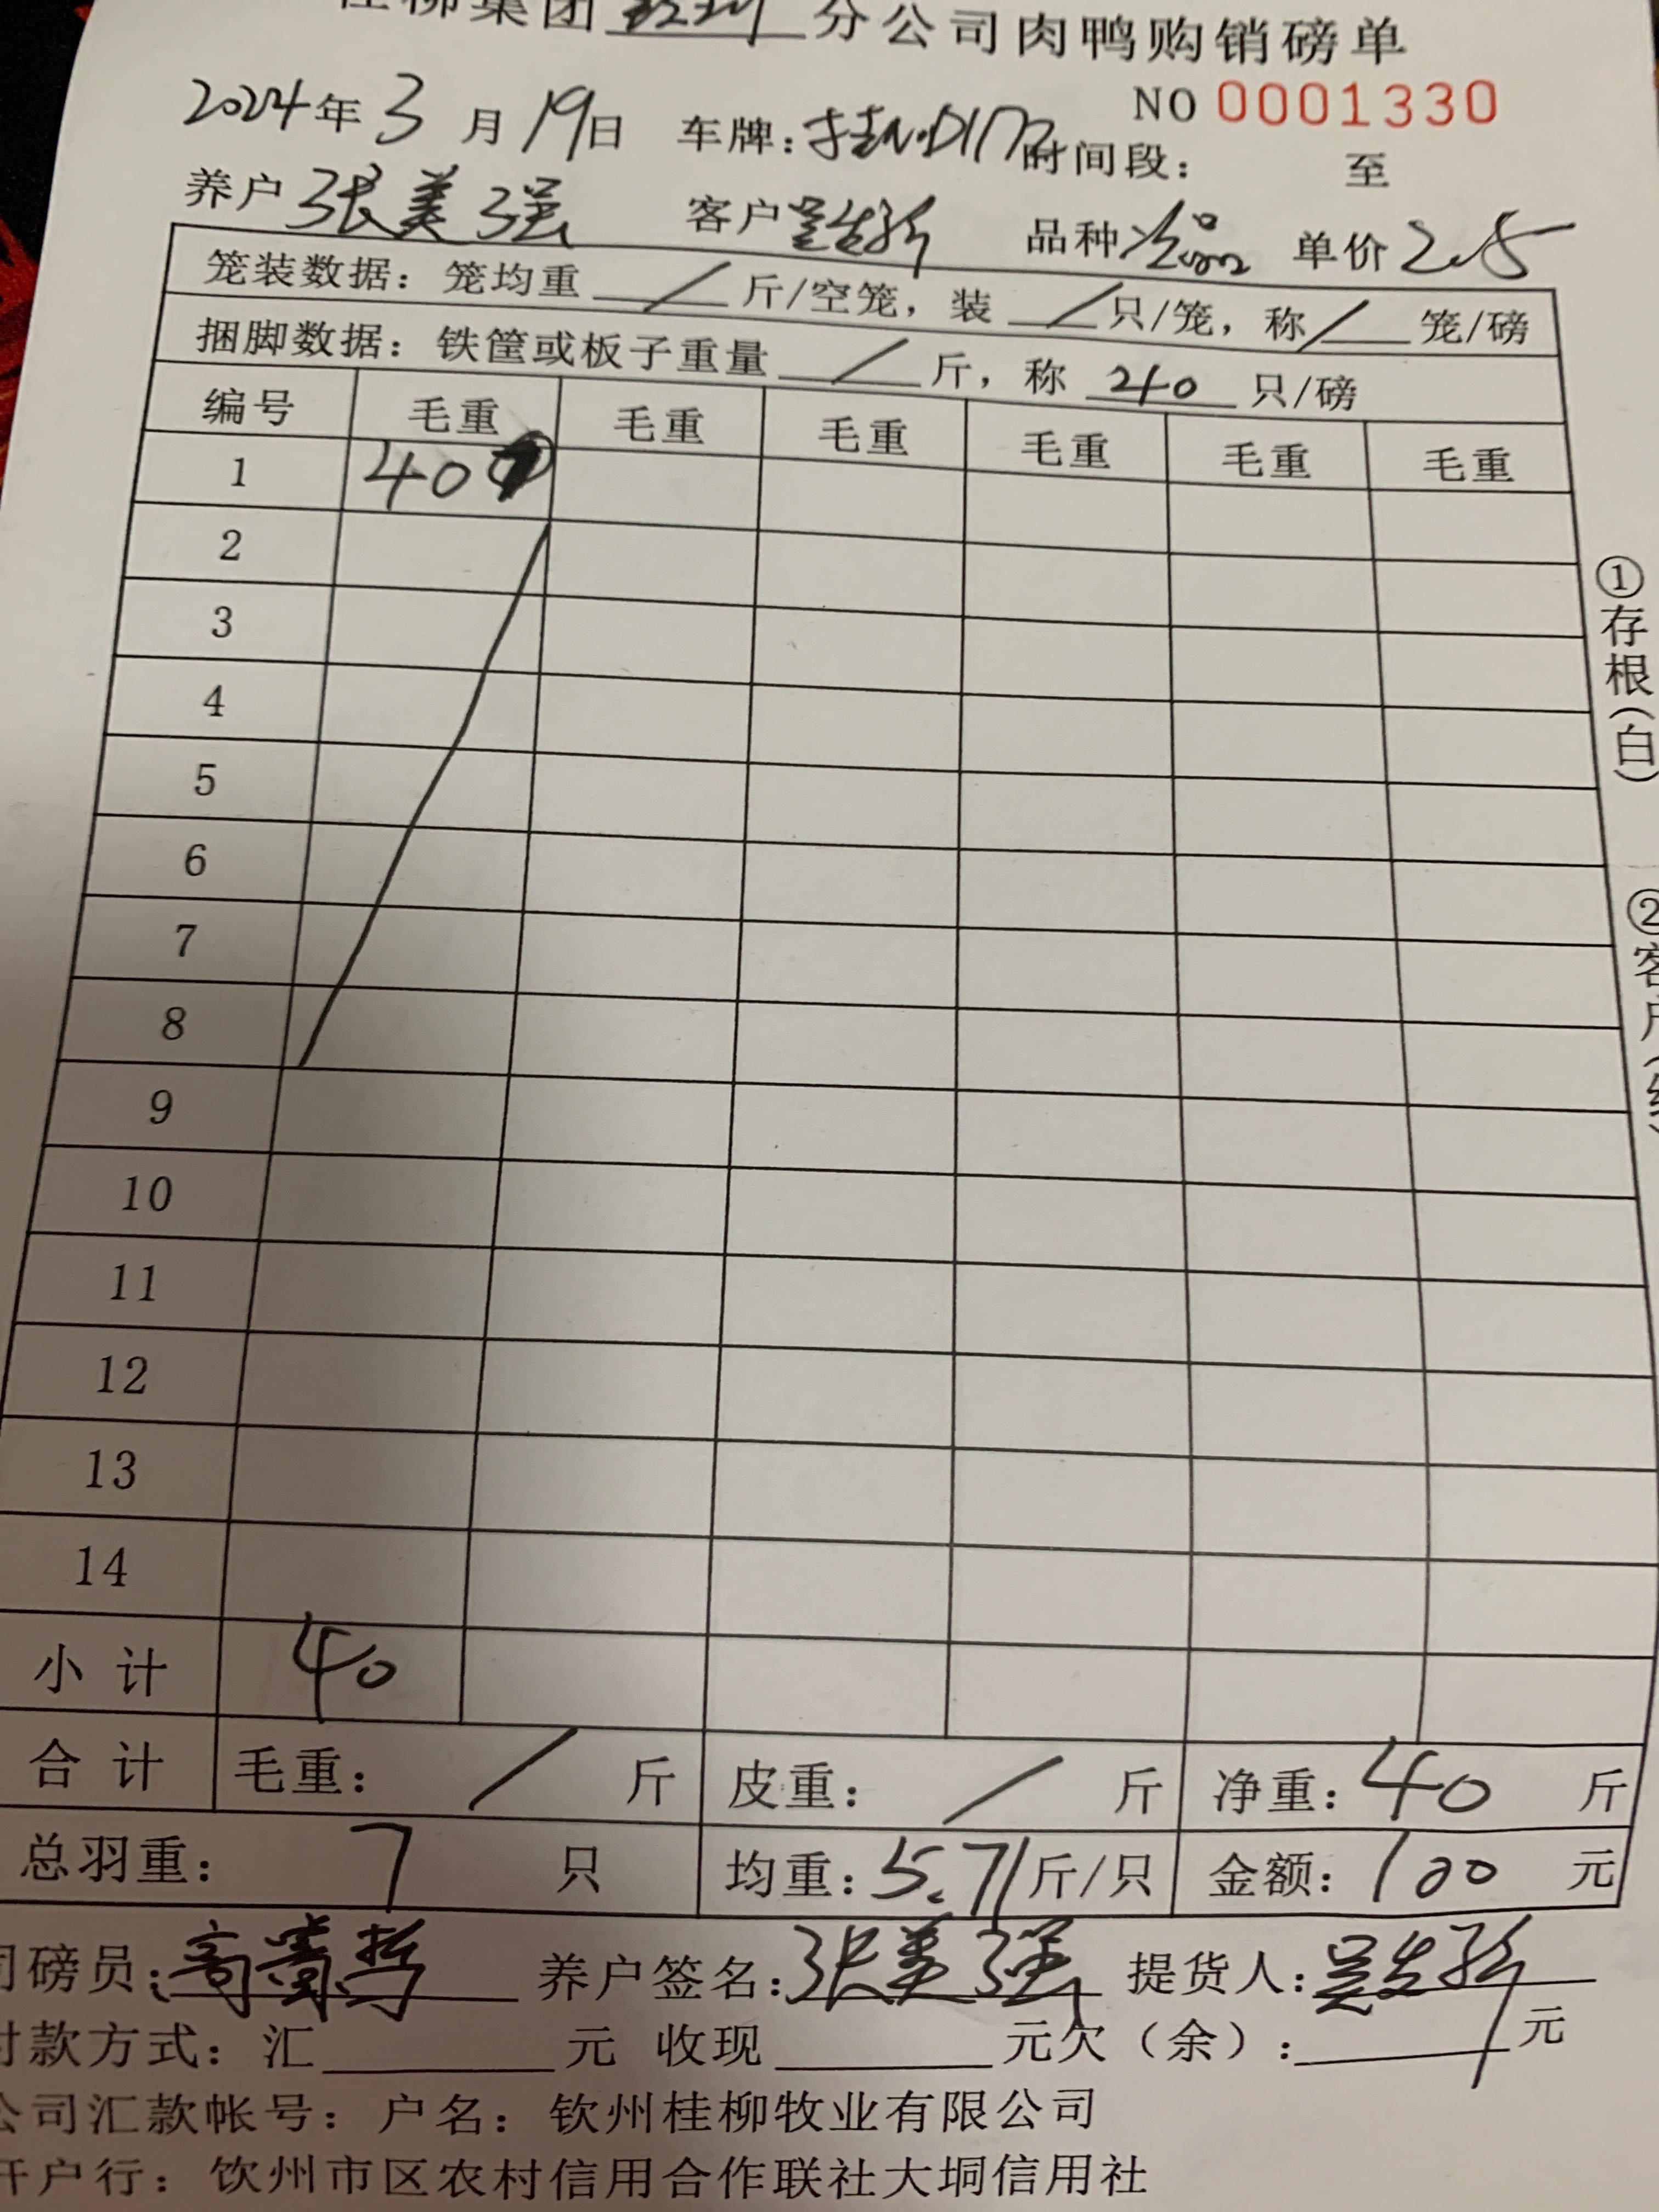 桂柳集团钦州分公司肉鸭购销磅单
NO 0001330
2024年3月19日 车牌:桂N·D1172 时间段: 至
养户 张美强 客户 品种 次品 单价 2.5
笼装数据: 笼均重 / 斤/空笼, 装 / 只/笼, 称 / 笼/磅
捆脚数据: 铁筐或板子重量 / 斤, 称 240 只/磅
编号 毛重 毛重 毛重 毛重 毛重 毛重
1 40
2
3
4
5
6
7
8
9
10
11
12
13
14
小计 40
合计 毛重: / 斤 皮重: / 斤 净重: 40 斤
总羽重: 7 只 均重: 5.71 斤/只 金额: 100 元
司磅员: 养户签名: 张美强 提货人:
付款方式: 汇 元 收现 元欠(余): 元
公司汇款帐号: 户名: 钦州桂柳牧业有限公司
开户行: 饮州市区农村信用合作联社大垌信用社
①存根(白)
②客户(红)